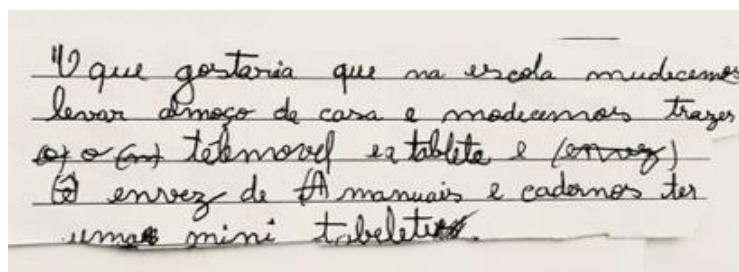 "O que gostaria que na escola mudecemos
levar almoço de casa e modecemos trazer
o telemovel ea tablete e (envez)
envez de manuais e cadernos ter
uma mini tabelete.